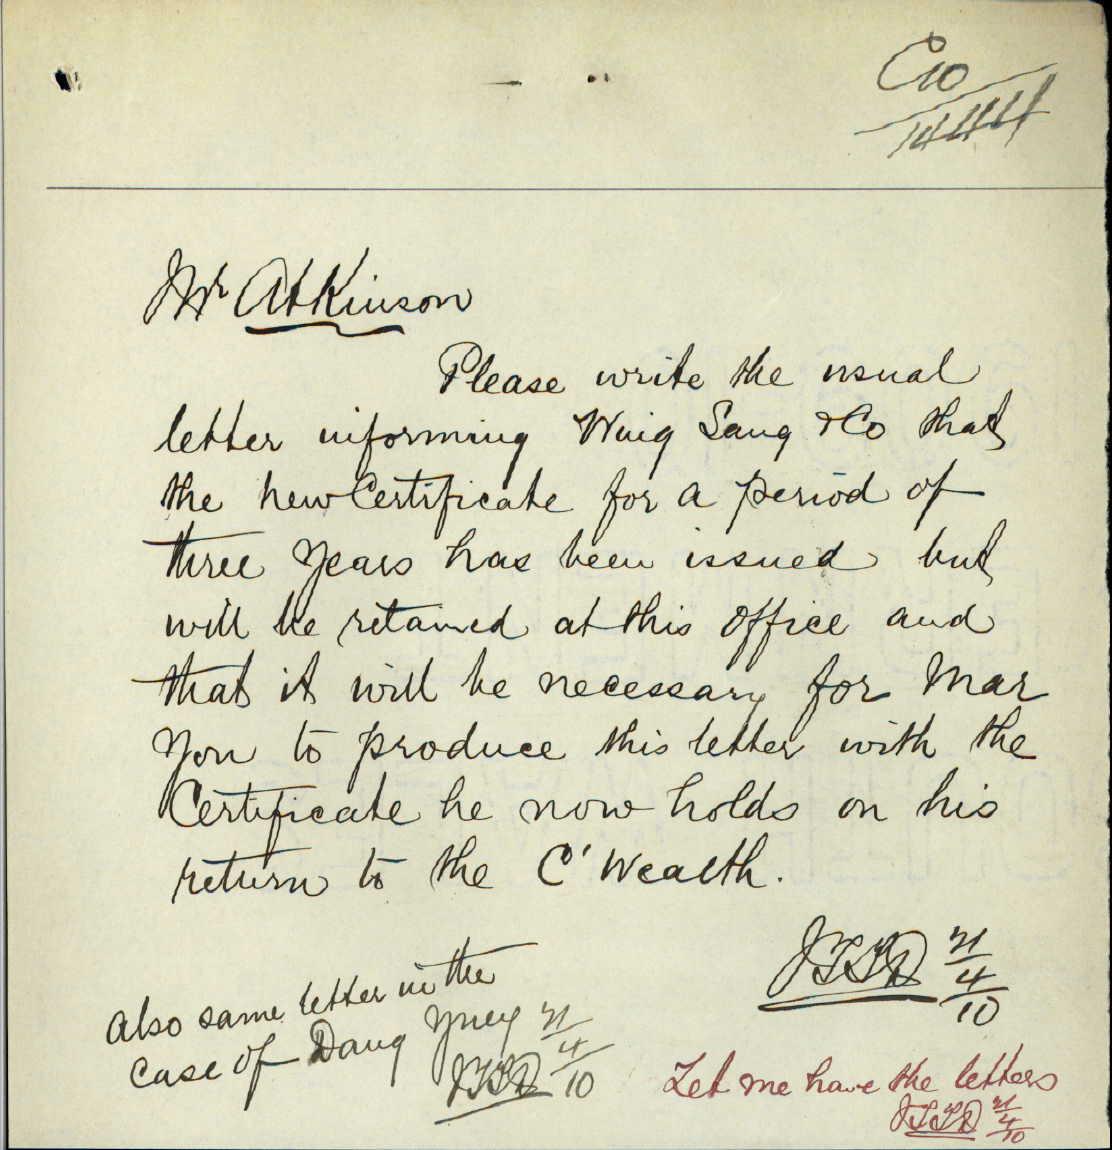 C10
/1444
Mr Atkinson
Please write the usual
letter informing Wing Sang & Co that
the new Certificate for a period of
three years has been issued but
will be retained at this office and
that it will be necessary for Mar
You to produce this letter with the
Certificate he now holds on his
return to the C'Wealth.
21/4/10
Also same letter in the
case of Dang Yuey 21/4/10
Let me have the letters
21/4/10